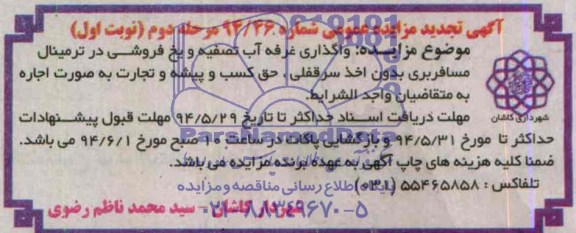 آگهی تجدید مزایده عمومی شماره ۹۴/۳۶ مرحله دوم (نوبت اول)
موضوع مزایـــده: واگذاری غرفه آب تصفیه و یخ فروشـــی در ترمینال
مسافربری بدون اخذ سرقفلی ، حق کسب و پیشه و تجارت به صورت اجاره
به متقاضیان واجد الشرایط.
مهلت دریافت اسـناد حداکثر تا تاریخ ۹۴/۵/۲۹ مهلت قبول پیشـــنهادات
حداکثر تا مورخ ۹۴/۵/۳۱ و بازگشایی پاکات در ساعت ۱۰ صبح مورخ ۹۴/۶/۱ می باشد.
ضمنا کلیه هزینه های چاپ آگهی به عهده برنده مزایده می باشد.
تلفاکس : ۵۵۴۶۵۸۵۸ (۰۳۱)
شهردار کاشان – سید محمد ناظم رضوی
شهرداری کاشان
ParsNamadData
اطلاع رسانی مناقصه و مزایده
۰۲۱-۸۸۳۴۹۶۷۰-۵